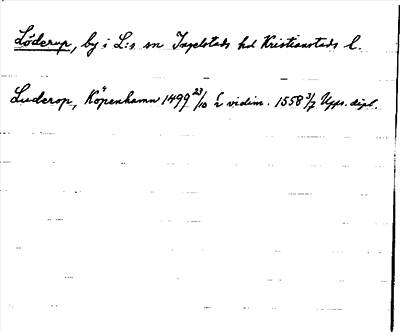 Löderup, by i L:s sn Ingelstads hd Kristianstads l.
Luderop, Köpenhamn 1499 23/10 i vidim. 1558 3/7 Upps. dipl.